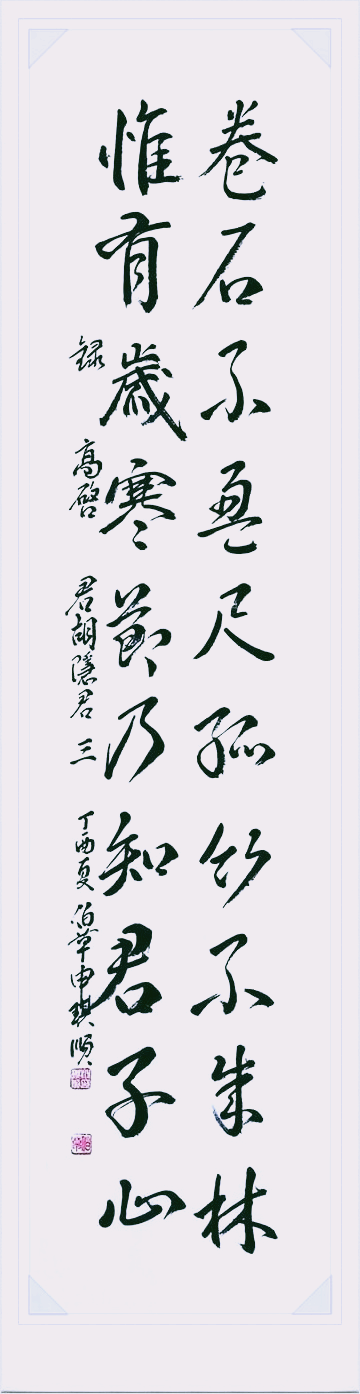 卷石不盈尺孤竹不成林
惟有歲寒節乃知君子心
録 高啓 君胡隱君 三 丁酉夏 伯草申琪順